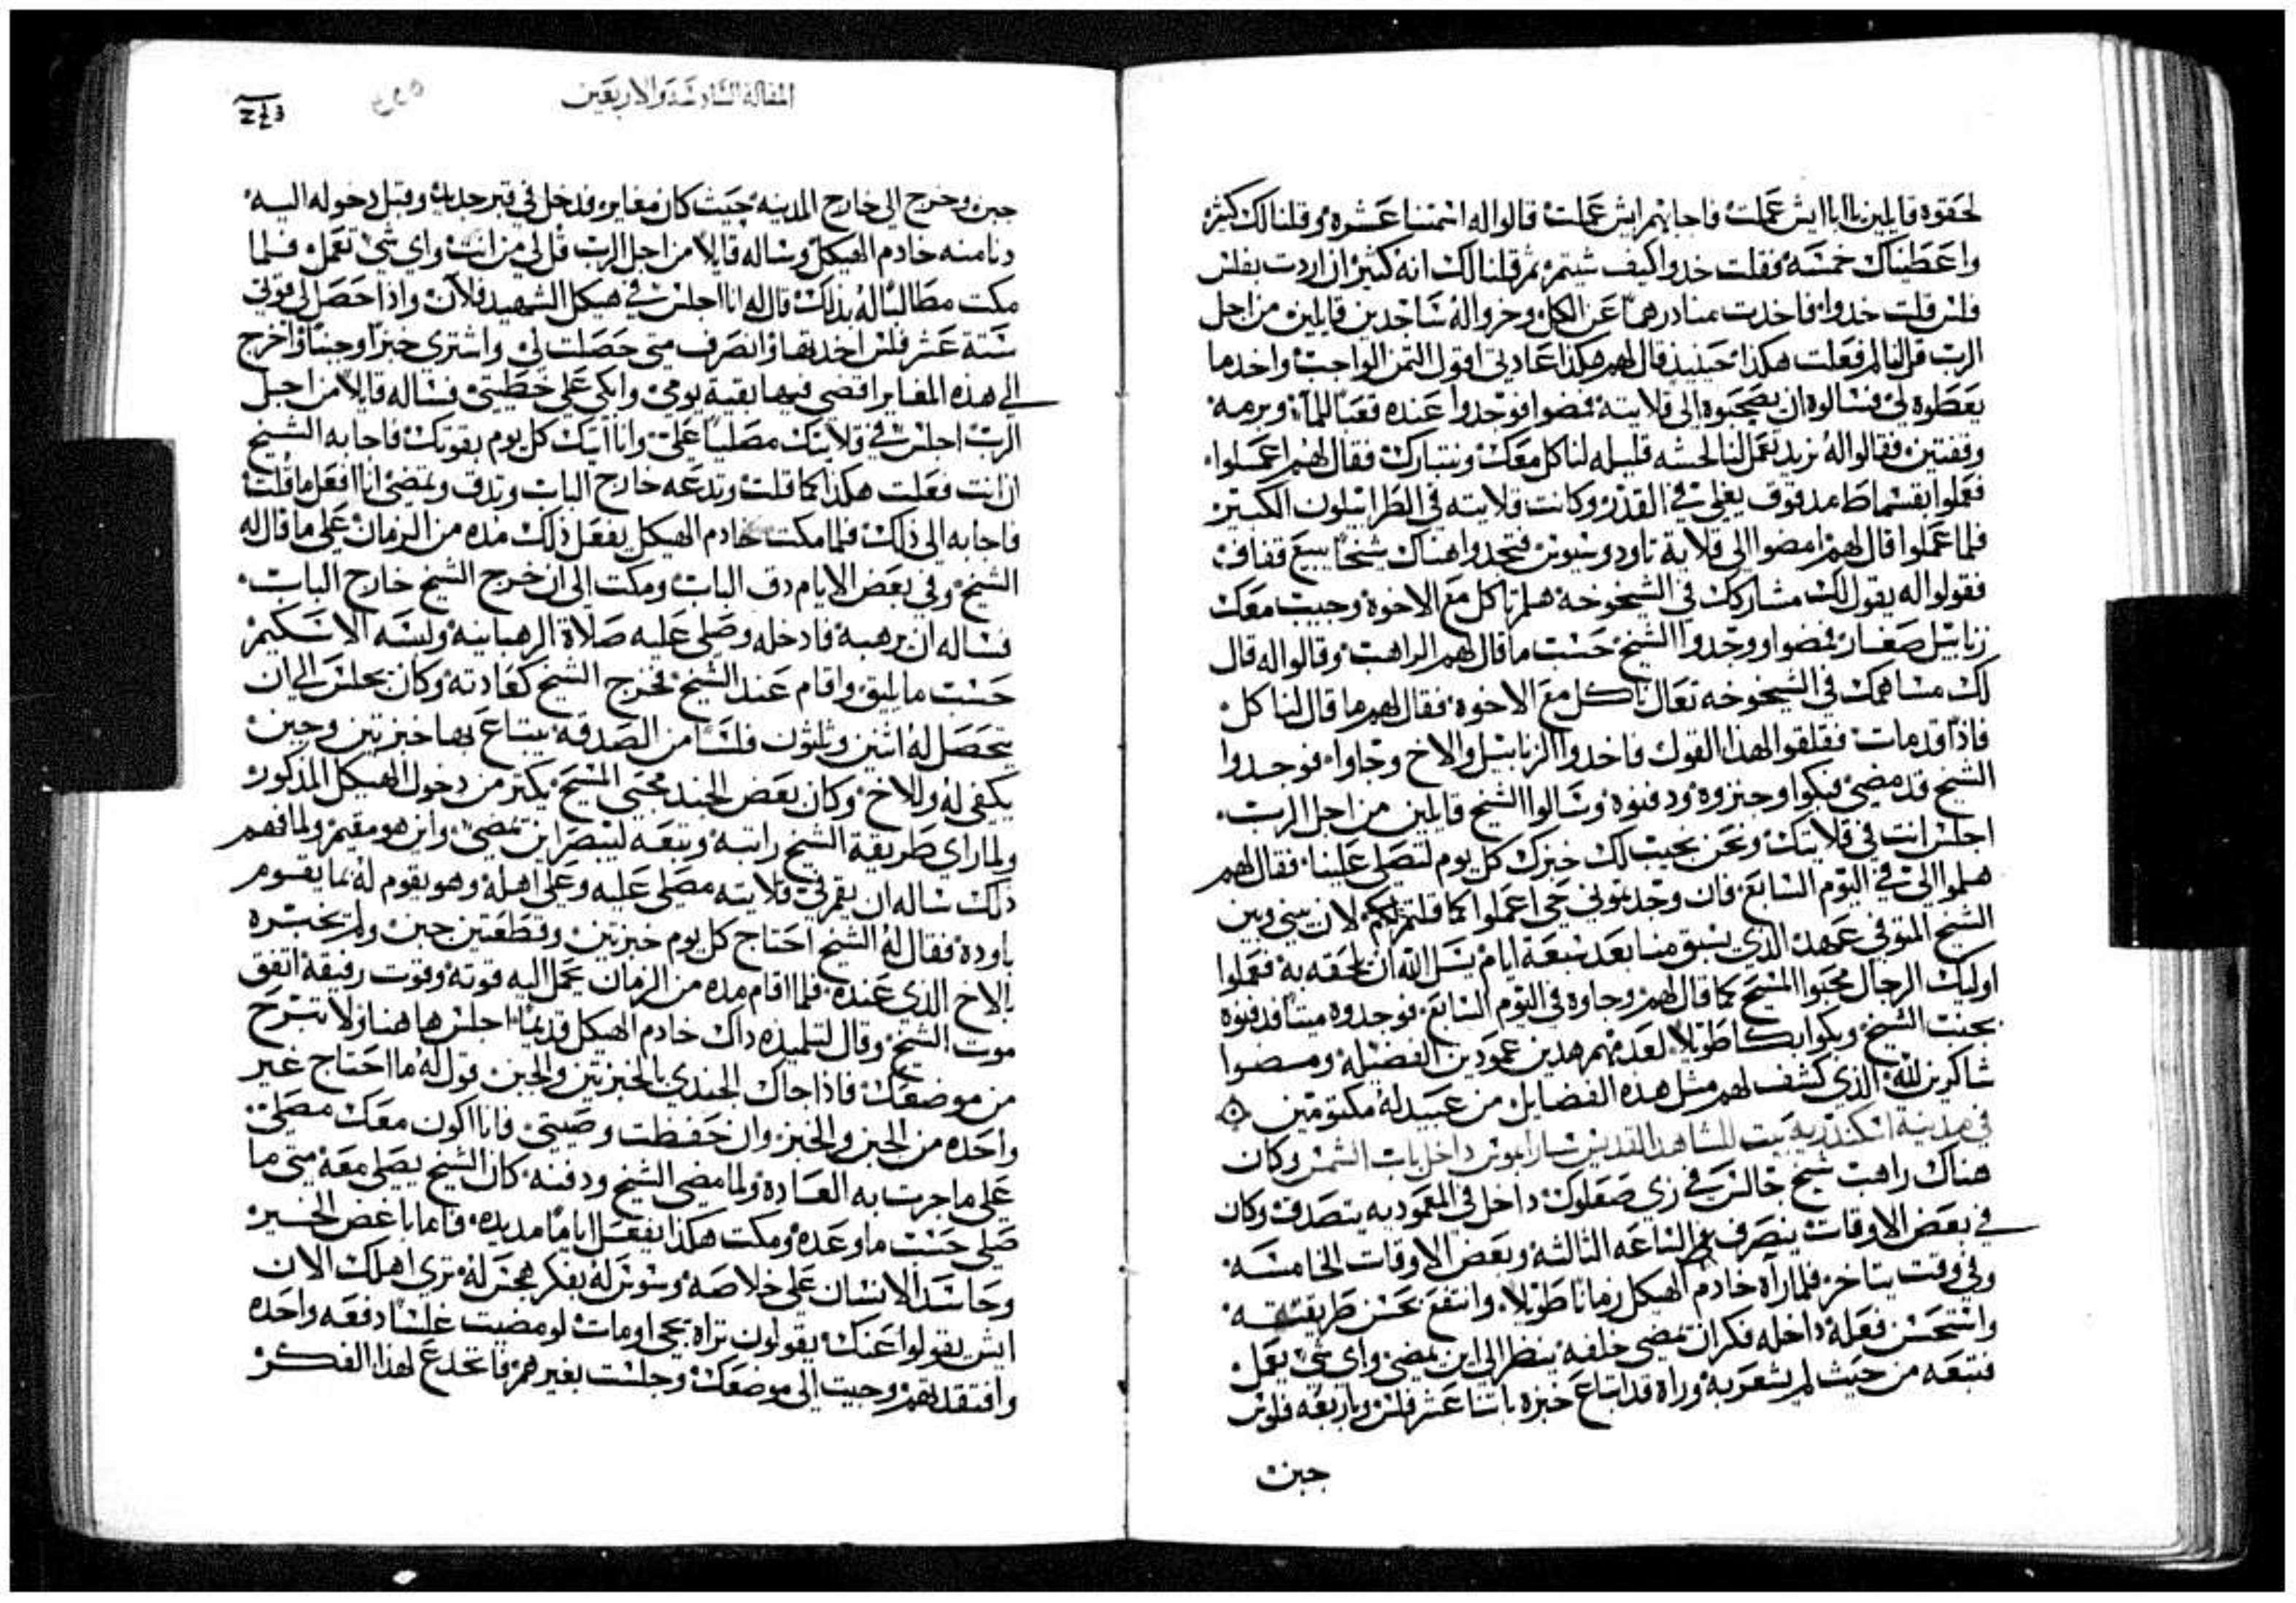 لحقوه قايلين يا ابا ايش عملت فاجابهم ايش عملت قالوا له اتمتنا عشره وقلنا لك كثير
واعطيناك خمسه فقلت خدوا كيف شيتم ثم قلنا لك انه كثير ان اردت بفلس
فلس قلت خدوا فاخدت منا درهمًا عن الكل وخروا له ساجدين قايلين من اجل
الرب قل لنا لم فعلت هكذا حينيذ قال لهم هكذا عادتي اقول الثمن الواجب واخد ما
يعطوه لي فسالوه ان يصحبوه الى قلايته فمضوا فوجدوا عنده قعبًا للمآ وبرمه
وقفتين فقالوا له نريد تعمل لنا لحسه قليله لناكل معك ونتبارك فقال لهم اعملوا
فعملوا بقسماط مدقوق يغلي في القدر وكانت قلايته في الطرابيلون الكبير
فلما عملوا قال لهم امضوا الى قلاية تاودوسيوس فتجدوا هناك شيخًا يبيع قفاف
فقولوا له يقول لك مشاركك في الشيخوخه هلم ناكل مع الاخوة وجيب معك
زنابيل صغار فمضوا ووجدوا الشيخ حسب ما قال لهم الراهب وقالوا له قال
لك مساهمك في الشيخوخه تعال ناكل مع الاخوه فقال لهم ما قال لنا كل
فاذًا قد مات فقلقوا لهذا القول فاخدوا الزنابيل والاخ وجاوا فوجدوا
الشيخ قد مضى فبكوا وجنزوه ودفنوه وسالوا الشيخ قايلين من اجل الرب
اجلس انت في قلايتك ونحن نجيب لك خبزك كل يوم لتصلي علينا فقال لهم
هلموا الي في اليوم السابع فان وجدتموني حي اعملوا كما قلتم لكم لان بيني وبين
الشيخ المتوفي عهد الذي يسبق منا بعد سبعة ايام يسل الله ان يلحقه به ففعلوا
اوليك الرجال محبوا المسيح كما قال لهم وجاوه في اليوم السابع فوجدوه ميتًا فدفنوه
بجنب الشيخ وبكوا بكا طويلا لعدمهم هدين عمودين الفضيله ومضوا
شاكرين لله الذي كشف لهم مثل هذه الفضايل من عبيد له مكتومين
في مدينة اسكندريه بيت للشاهد القديس ساراببون داخل باب الشمس وكان
هناك راهب شيخ جالس في زي صعلوك داخل في المعموديه يتصدق وكان
في بعض الاوقات ينصرف الساعه الثالثه وبعض الاوقات الخامسه
وفي وقت يتاخر فلما راه خادم الهيكل زمانًا طويلا وانتفع بحسن طريقته
واستحسن فعله داخله فكر ان يمضي خلفه ينظر الى اين يمضي واي شي يعمل
فتبعه من حيث لم يشعر به وراه قد ابتاع خبزه باثنا عشر فلس وباربعه فلوس
جبن
المقالة السادسة والاربعين
جبن وخرج الى خارج المدينه حيث كان مغاير فدخل في قبر جديد وقبل دخوله اليه
دنا منه خادم الهيكل وساله قايلًا من اجل الرب قل لي من انت واي شي تعمل فلما
مكت مطالبًا له بذلك قال له انا اجلس في هيكل الشهيد فلان واذا حصل لي قوتي
ستة عشر فلس اخدتها وانصرف متى حصلت لي واشتري خبزًا وجبنًا واخرج
الى هذه المغاير اقضي فيها بقية يومي وابكي على خطيتي فساله قايلًا من اجل
الرب اجلس في قلايتك مصليًا علي وانا اتيك كل يوم بقوتك فاجابه الشيخ
ان انت فعلت هكذا كما قلت وتدعه خارج الباب وتدق وتمضي انا افعل ما قلت
فاجابه الى ذلك فلما مكت خادم الهيكل يفعل ذلك مده من الزمان على ما قال له
الشيخ وفي بعض الايام دق الباب ومكت الى ان خرج الشيخ خارج الباب
فساله ان يرهبه فادخله وصلى عليه صلاة الرهبانيه ولبسه الاسكيم
حسب ما يليق واقام عند الشيخ فخرج الشيخ كعادته وكان يجلس الى ان
يتحصل له اثنين وثلثون فلسًا من الصدقه يبتاع بها خبزتين وجبن
يكفي له وللاخ وكان بعض الجند محبي المسيح يكثر من دخول الهيكل المذكور
ولما راى طريقة الشيخ راتبه وتبعه ليبصر اين تمضي واين هو مقيم ولما فهم
ذلك ساله ان يقم في قلايته مصلى عليه وعلى اهله وهو يقوم له بما يقوم
باوده فقال له الشيخ احتاج كل يوم خبزتين وقطعتين جبن ولم يخبره
بالاخ الذي عنده فلما اقام مده من الزمان يحمل اليه قوته وقوت رفيقه اتفق
موت الشيخ وقال لتلميذه داك خادم الهيكل قديمًا اجلس هاهنا ولا تبرح
من موضعك فاذا جاك الجندي بالخبزتين والجبن قول له ما احتاج غير
واحده من الجبن والخبز وان حفظت وصيتي فانا اكون معك مصلي
على ما جرت به العاده ولما مضى الشيخ ودفنه كان الشيخ يصلي معه متى ما
صلى حسب ما وعده ومكت هكذا يفعل ايامًا مديده فاما باغض الخير
وحاسد الانسان على خلاصه وسوس له بفكر هجس له ترى اهلك الان
ايش يقولوا عنك يقولون تراه يحيى او مات لو مضيت غلسًا دفعه واحده
وافتقدتهم وجيت الى موضعك وجلست بغير هم فانخدع لهذا الفكر